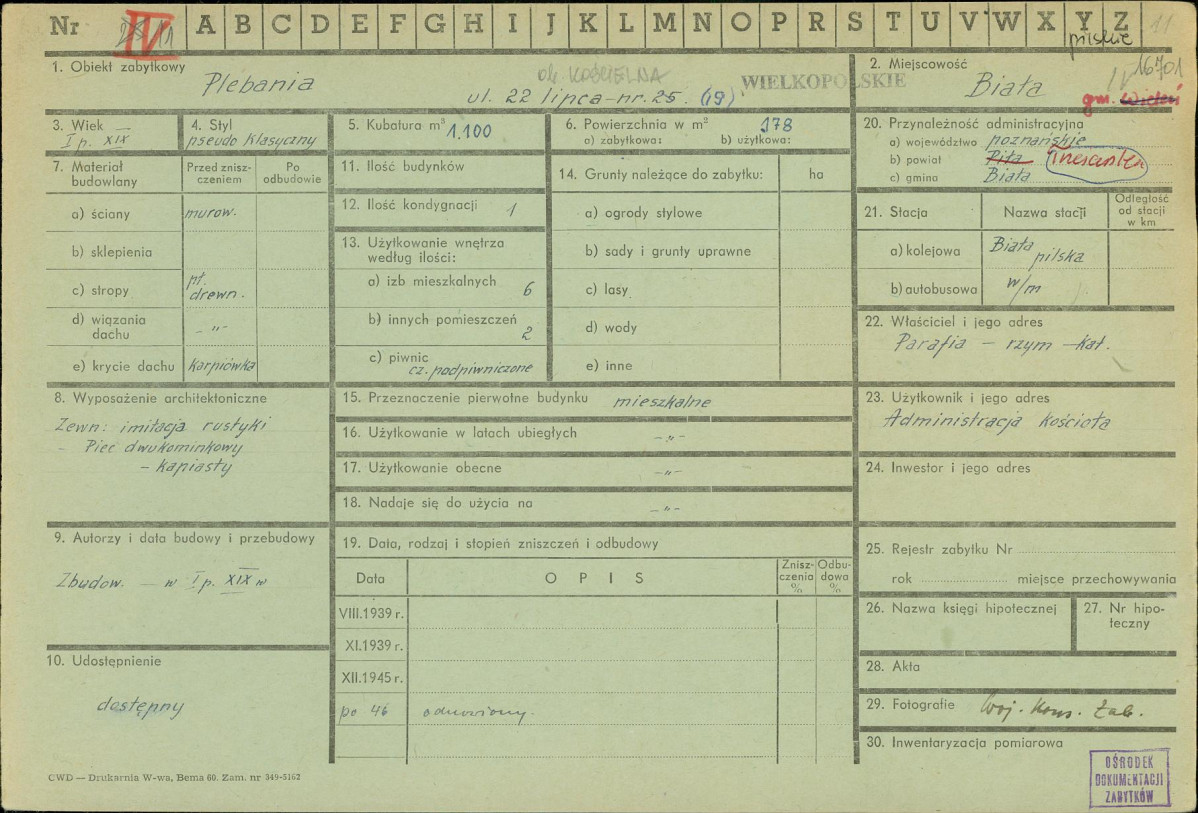 Nr IV 11 A B C D E F G H I J K L M N O P R S T U V W X Y Z 11
pilskie
1. Obiekt zabytkowy
Plebania
ul. KOŚCIELNA
ul. 22 lipca - nr. 25. (19)
WIELKOPOLSKIE
2. Miejscowość
16701
Biała
gm. Wieleń
3. Wiek
I p. XIX
4. Styl
pseudo klasyczny
5. Kubatura m³ 1.100
6. Powierzchnia w m² 178
a) zabytkowa: b) użytkowa:
7. Materiał budowlany
Przed zniszczeniem
Po odbudowie
a) ściany murow.
b) sklepienia
c) stropy pł. drewn.
d) wiązania dachu - „ -
e) krycie dachu karpiówka
8. Wyposażenie architektoniczne
Zewn: imitacja rustyki
- Piec dwukominkowy
- kapiasty
9. Autorzy i data budowy i przebudowy
Zbudow. - w I p. XIX w
10. Udostępnienie
dostępny
11. Ilość budynków
12. Ilość kondygnacji 1
13. Użytkowanie wnętrza
według ilości:
a) izb mieszkalnych 6
b) innych pomieszczeń 2
c) piwnic
cz. podpiwniczone
14. Grunty należące do zabytku: ha
a) ogrody stylowe
b) sady i grunty uprawne
c) lasy
d) wody
e) inne
15. Przeznaczenie pierwotne budynku mieszkalne
16. Użytkowanie w latach ubiegłych - „ -
17. Użytkowanie obecne - „ -
18. Nadaje się do użycia na - „ -
19. Data, rodzaj i stopień zniszczeń i odbudowy
Data OPIS Zniszczenia % Odbudowa %
VIII.1939 r.
XI.1939 r.
XII.1945 r.
po 46 odnowiony.
20. Przynależność administracyjna
a) województwo poznańskie
b) powiat Piła Trzcianka
c) gmina Biała
21. Stacja Nazwa stacji Odległość od stacji w km
a) kolejowa Biała pilska
b) autobusowa w/m
22. Właściciel i jego adres
Parafia - rzym - kat.
23. Użytkownik i jego adres
Administracja kościoła
24. Inwestor i jego adres
25. Rejestr zabytku Nr
rok miejsce przechowywania
26. Nazwa księgi hipotecznej
27. Nr hipoteczny
28. Akta
29. Fotografie Woj. Kons. Zab.
30. Inwentaryzacja pomiarowa
OŚRODEK
DOKUMENTACJI
ZABYTKÓW
CWD — Drukarnia W-wa, Bema 60. Zam. nr 349-5162